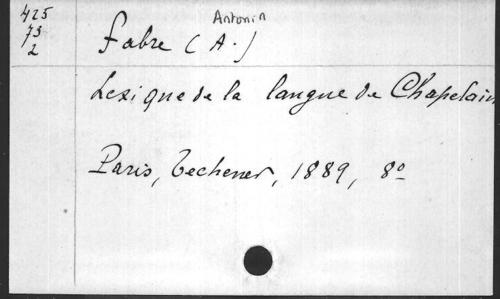 425
73
2
Antonin
Fabre (A.)
Lexique de la langue de Chapelain
Paris, Techener, 1889, 8°